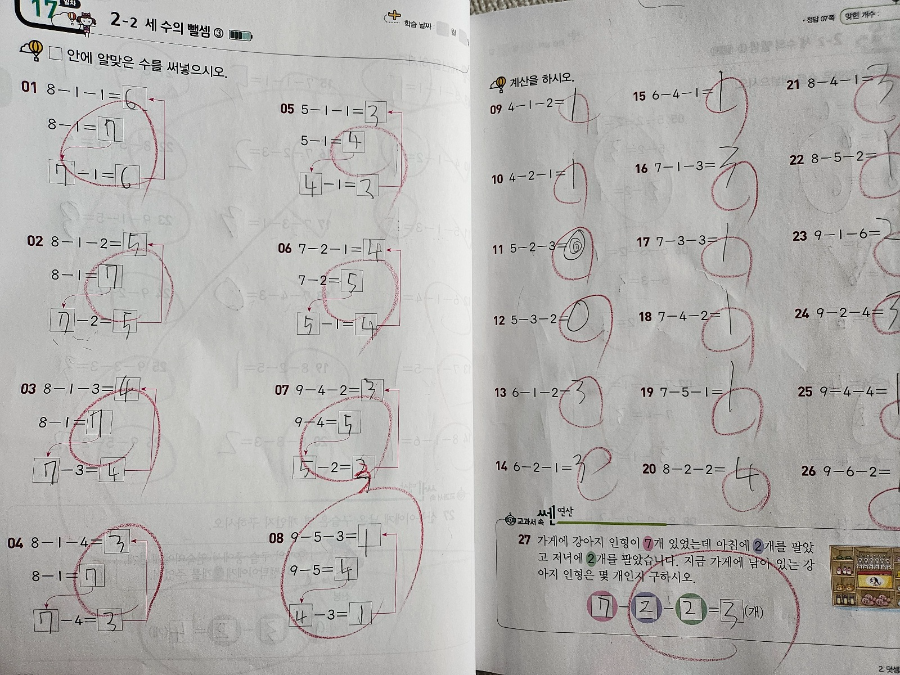 17 일차
2-2 세 수의 뺄셈 ③
학습 날짜 월
□ 안에 알맞은 수를 써넣으시오.
01 8-1-1=6
8-1=7
7-1=6
02 8-1-2=5
8-1=7
7-2=5
03 8-1-3=4
8-1=7
7-3=4
04 8-1-4=3
8-1=7
7-4=3
05 5-1-1=3
5-1=4
4-1=3
06 7-2-1=4
7-2=5
5-1=4
07 9-4-2=3
9-4=5
5-2=3
08 9-5-3=1
9-5=4
4-3=1
•정답 07쪽 맞힌 개수 :
계산을 하시오.
09 4-1-2=1
10 4-2-1=1
11 5-2-3=0
12 5-3-2=0
13 6-1-2=3
14 6-2-1=3
15 6-4-1=1
16 7-1-3=3
17 7-3-3=1
18 7-4-2=1
19 7-5-1=1
20 8-2-2=4
21 8-4-1=3
22 8-5-2=
23 9-1-6=2
24 9-2-4=3
25 9-4-4=1
26 9-6-2=
교과서 속 쎈연산
27 가게에 강아지 인형이 7개 있었는데 아침에 2개를 팔았
고 저녁에 2개를 팔았습니다. 지금 가게에 남아 있는 강
아지 인형은 몇 개인지 구하시오.
7-2-2=3(개)
2. 덧셈